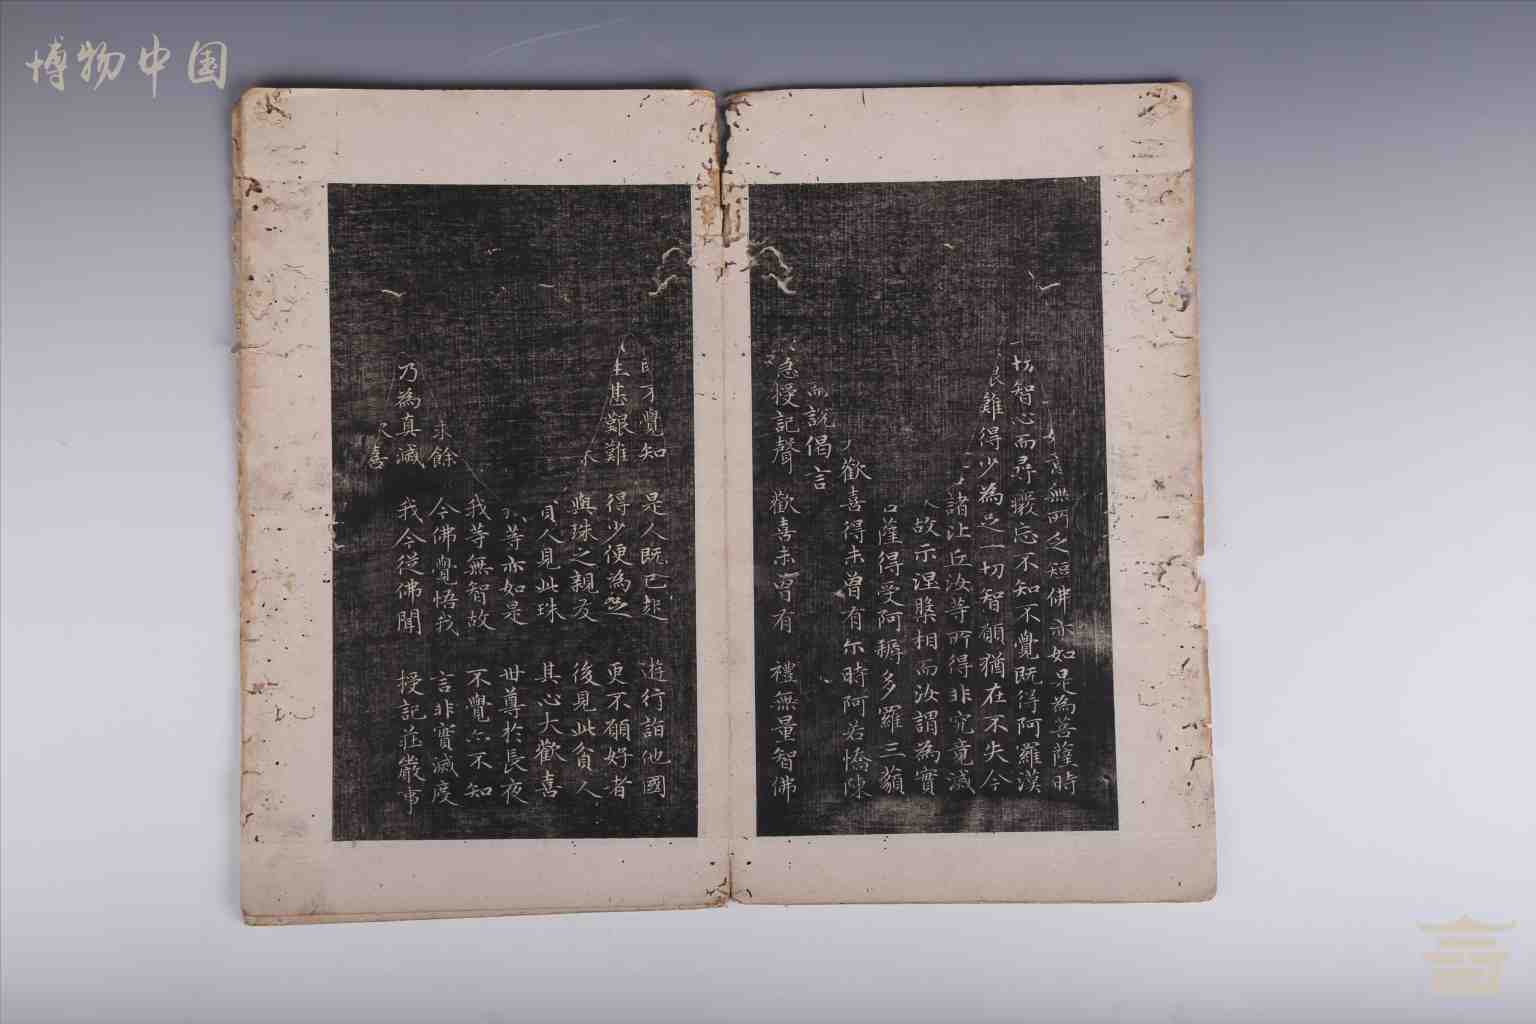 博物中国
無所乏短佛亦如是為菩薩時
切智心而尋癈忘不知不覺既得阿羅漢
難得少為足一切智願猶在不失今
諸比丘汝等所得非究竟滅
故示涅槃相而汝謂為實
薩得受阿耨多羅三藐
歡喜得未曾有尒時阿若憍陳
而說偈言
授記聲 歡喜未曾有 禮無量智佛
覺知 是人既已起 遊行詣他國
甚艱難 得少便為足 更不願好者
與珠之親友 後見此貧人
貧人見此珠 其心大歡喜
等亦如是 世尊於長夜
我等無智故 不覺亦不知
求餘 今佛覺悟我 言非實滅度
乃為真滅 我今從佛聞 授記莊嚴事
喜